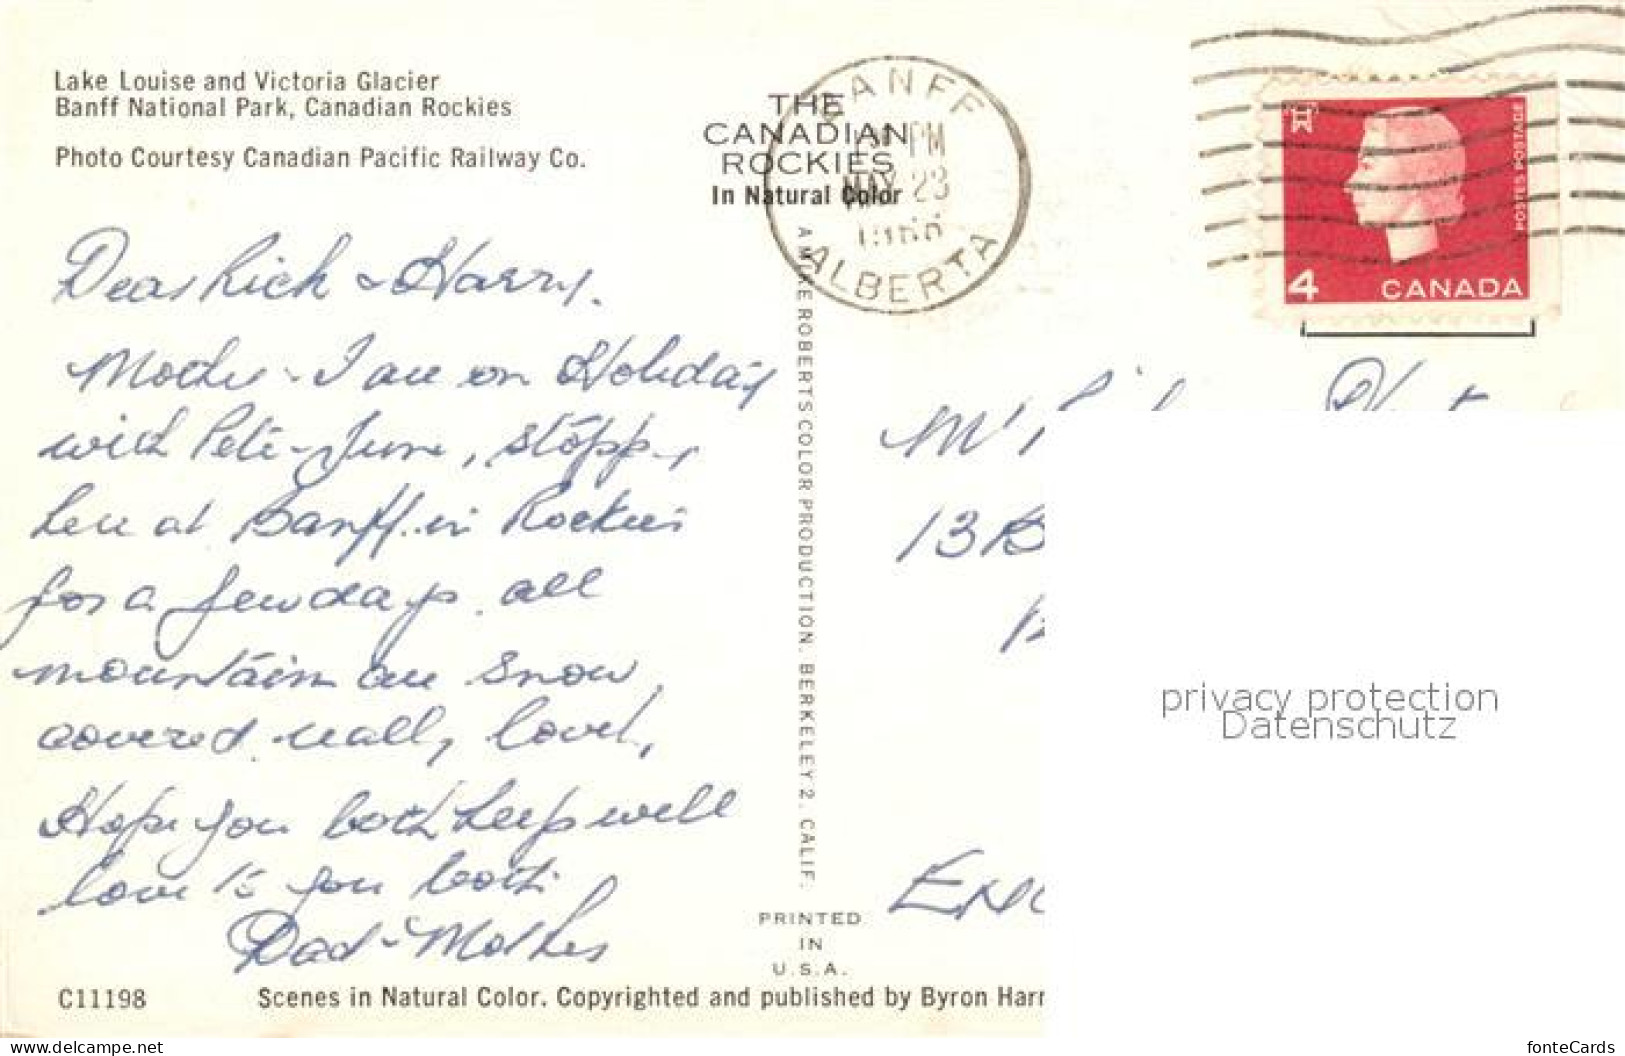 Lake Louise and Victoria Glacier
Banff National Park, Canadian Rockies
Photo Courtesy Canadian Pacific Railway Co.
THE
CANADIAN
ROCKIES
In Natural Color
BANFF
PM
MAY 23
ALBERTA
POSTES POSTAGE
4 CANADA
Dear Rich & Harry.
Mother & I are on Holiday
with Pete & June, stopp
here at Banff in Rockies
for a few days. all
mountain are snow
covered. really lovely,
Hope you both keep well
love to you both
Dad & Mother
AMCKE ROBERTS COLOR PRODUCTION. BERKELEY 2. CALIF.
PRINTED
IN
U.S.A.
13 B
privacy protection
Datenschutz
C11198 Scenes in Natural Color. Copyrighted and published by Byron Harr
www.delcampe.net fonteCards